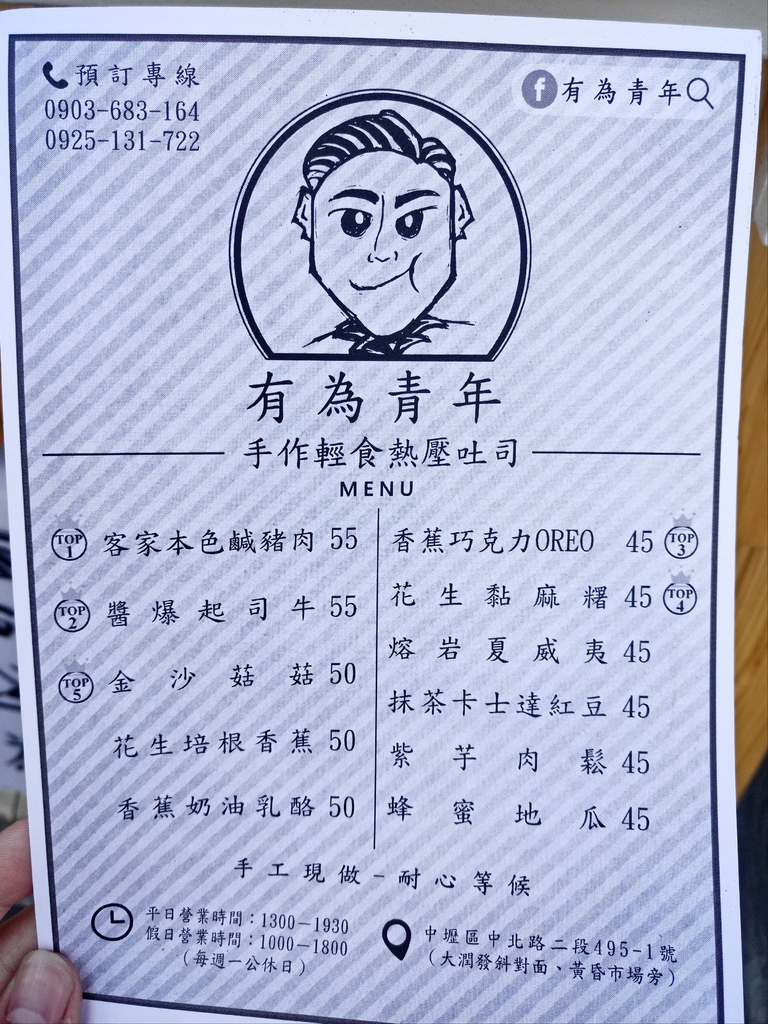 預訂專線
0903-683-164
0925-131-722
有為青年
有為青年
手作輕食熱壓吐司
MENU
TOP 1 客家本色鹹豬肉 55
TOP 2 醬爆起司牛 55
TOP 5 金沙菇菇 50
花生培根香蕉 50
香蕉奶油乳酪 50
香蕉巧克力OREO 45 TOP 3
花生黏麻糬 45 TOP 4
熔岩夏威夷 45
抹茶卡士達紅豆 45
紫芋肉鬆 45
蜂蜜地瓜 45
手工現做-耐心等候
平日營業時間：1300-1930
假日營業時間：1000-1800
(每週一公休日)
中壢區中北路二段495-1號
(大潤發斜對面、黃昏市場旁)